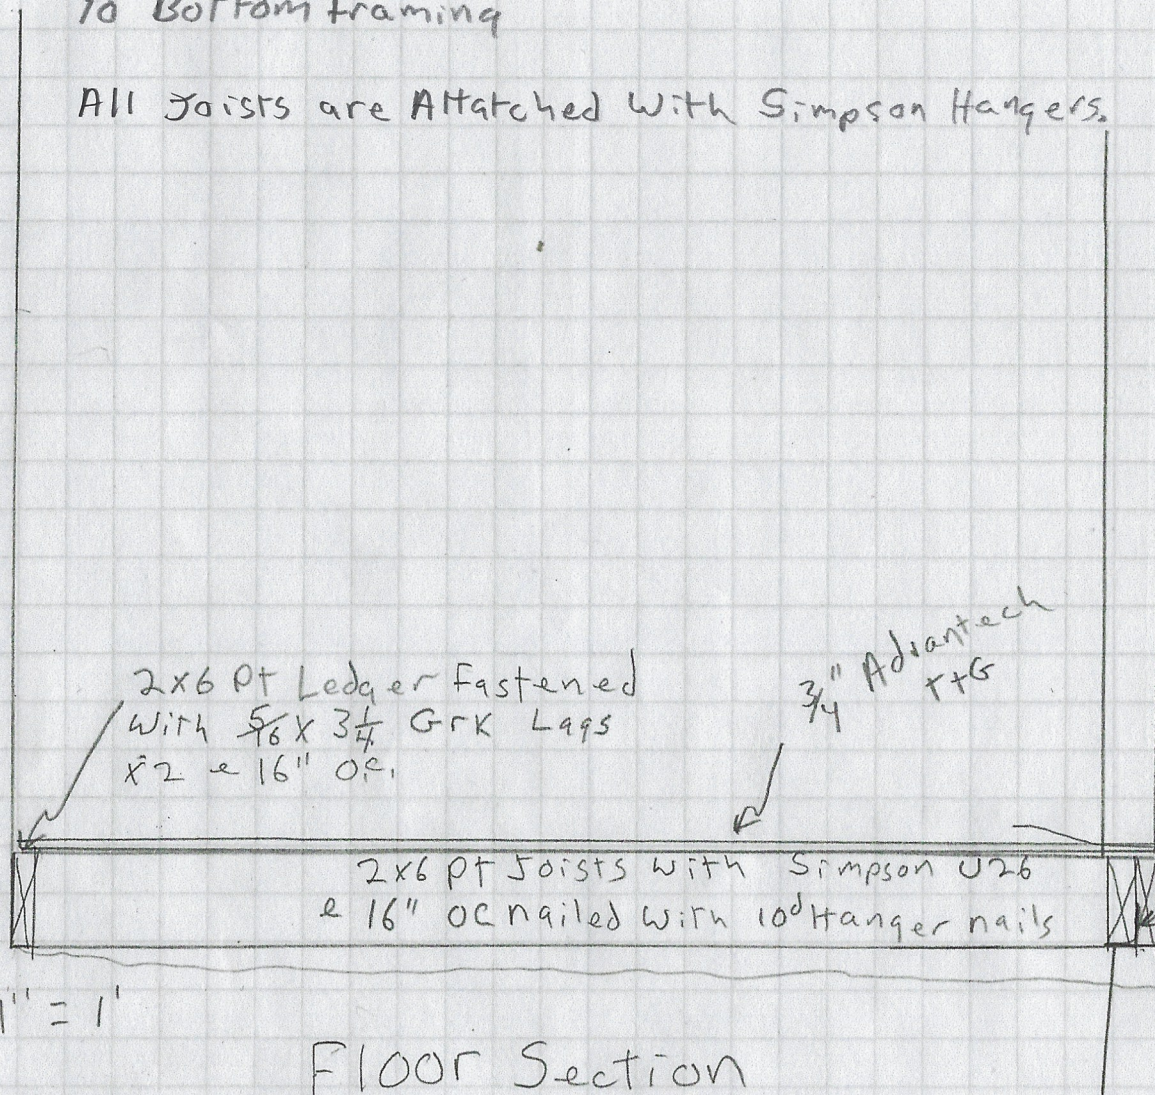 To Bottom framing
All Joists are Attatched With Simpson Hangers.
2x6 Pt Ledger Fastened
With 5/16 x 3 1/4 Grk Lags
x2 e 16" O.C.
3/4" Advantech
T+G
2x6 pt Joists with Simpson U26
e 16" OC nailed with 10d Hanger nails
1" = 1'
Floor Section